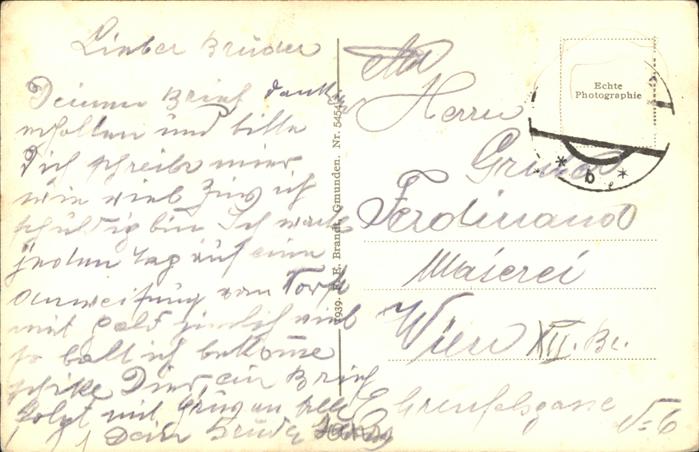 Lieber Bruder
Deinen Brief dankend
erhalten und bitte
Dich schreibe mier
wie viel Zins ich
schuldig bin Ich warte
jeden Tag auf eine
Anweisung vom
mit Geld
so balt ich bekome
schike Dier, ein Brief
folgt mit Grüss an alle
Dein Bruder
1939. E. Brandt, Gmunden. Nr. 5454
An
Herrn
Ferdinand
Maierei
Wien XII. Bz.
N=6
Echte
Photographie
* b *